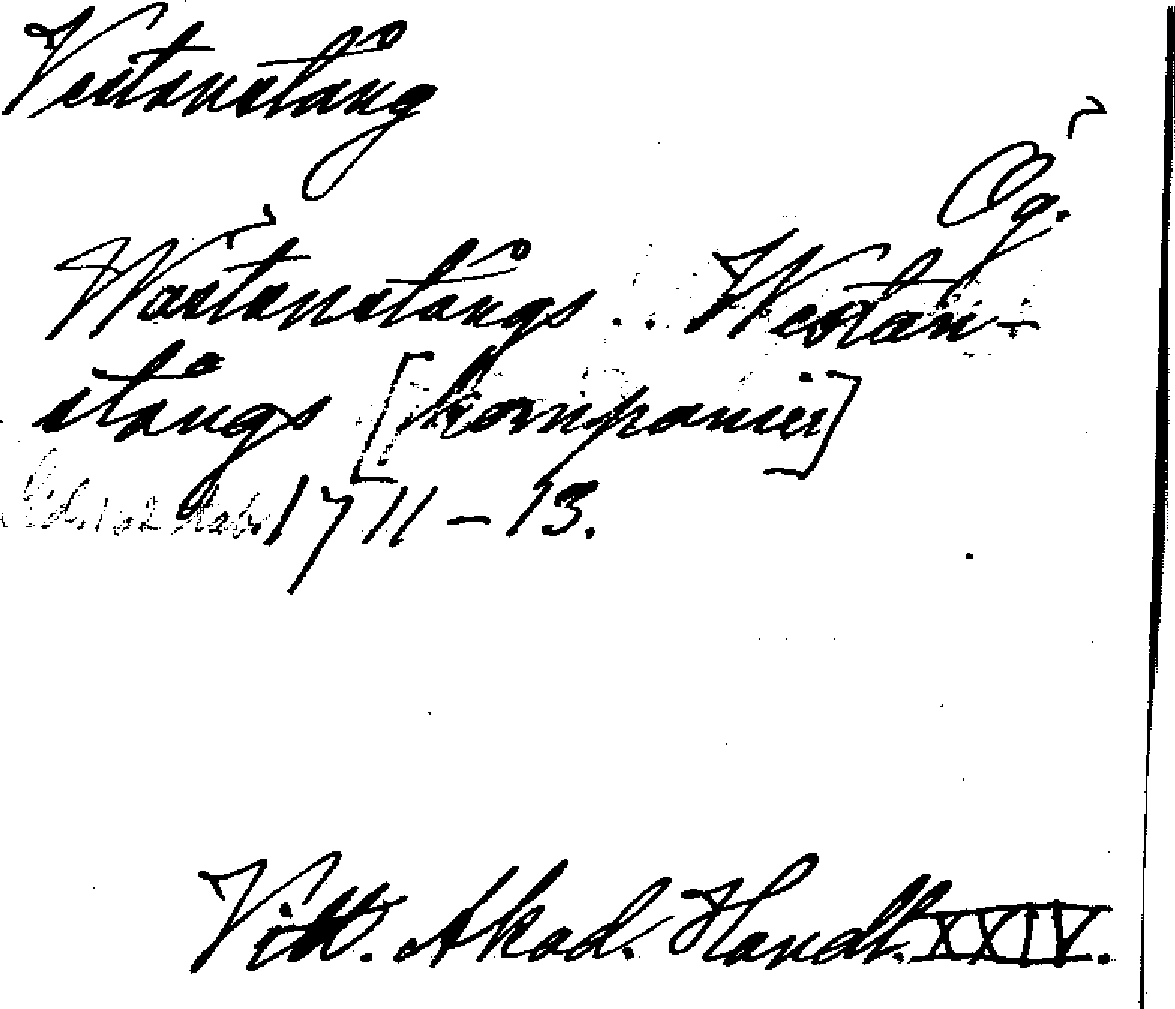 Vestanstång
Ög.
Wästanstångs .. Westan-
stångs [kompanier]
1711-13.
Vitt. Akad. Handl. XXIV.